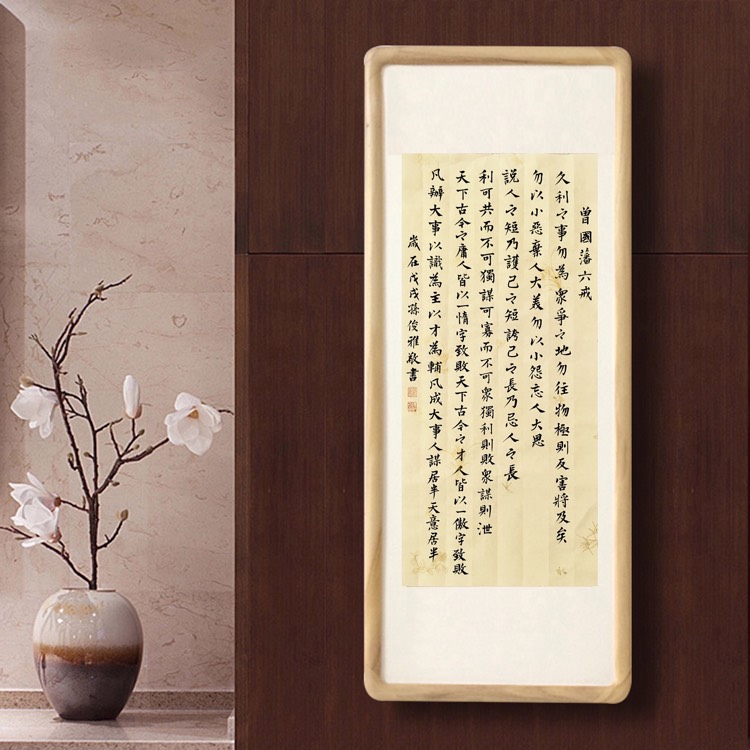 曾國藩六戒
久利之事勿為衆爭之地勿往物極則反害將及矣
勿以小惡棄人大美勿以小怨忘人大恩
說人之短乃護己之短誇己之長乃忌人之長
利可共而不可獨謀可寡而不可衆獨利則敗衆謀則泄
天下古今之庸人皆以一惰字致敗天下古今之才人皆以一傲字致敗
凡辦大事以識為主以才為輔凡成大事人謀居半天意居半
歲在戊戌孫俊雅敬書